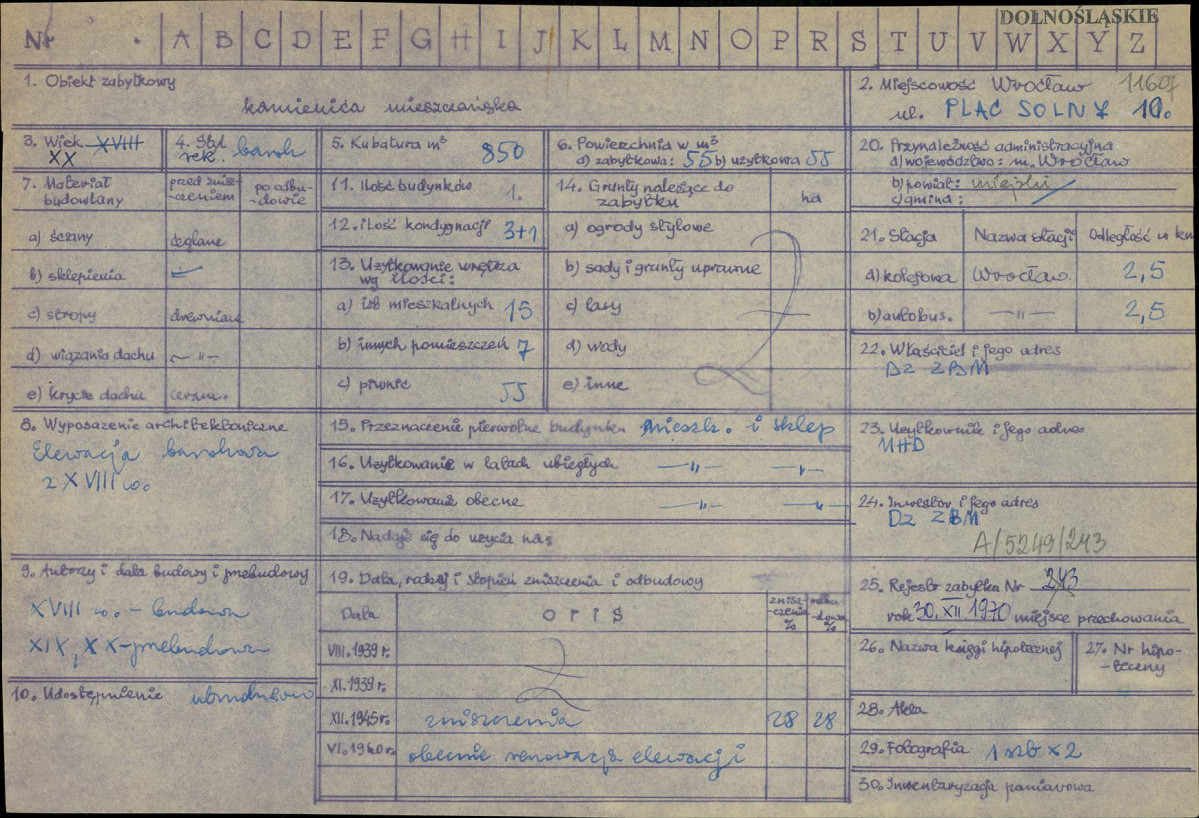 DOLNOŚLĄSKIE
Nr . A B C D E F G H I J K L M N O P R S T U V W X Y Z
1. Obiekt zabytkowy
kamienica mieszczańska
2. Miejscowość Wrocław 11607
ul. PLAC SOLNY 10.
3. Wiek XVIII
XX
4. Styl
rek. barok
5. Kubatura m³ 850
6. Powierzchnia w m³
a) zabytkowa: 55 b) użytkowa 55
20. Przynależność administracyjna
a) województwo: m. Wrocław
b) powiat: miejski
c) gmina:
7. Materiał
budowlany
przed znisz-
-czeniem
po odbu-
-dowie
a) ściany ceglane
b) sklepienia
c) stropy drewniane
d) wiązania dachu – " –
e) krycie dachu ceram.
11. Ilość budynków 1.
12. ilość kondygnacji 3+1
13. Użytkowanie wnętrza
wg ilości:
a) izb mieszkalnych 15
b) innych pomieszczeń 7
c) piwnic 55
14. Grunty należące do
zabytku
ha
a) ogrody stylowe
b) sady i grunty uprawne
c) lasy
d) wody
e) inne
21. Stacja Nazwa stacji Odległość w km
a) kolejowa Wrocław. 2,5
b) autobus. – " – 2,5
22. Właściciel i jego adres
DZ ZBM
8. Wyposażenie architektoniczne
Elewacja barokowa
z XVIII w.
15. Przeznaczenie pierwotne budynku mieszk. i sklep
16. Użytkowanie w latach ubiegłych – " – – " –
17. Użytkowanie obecne – " – – " –
18. Nadaje się do użycia na:
23. Użytkownik i jego adres
MHD
24. Inwestor i jego adres
DZ ZBM
A/5249/243
9. Autorzy i data budowy i przebudowy
XVIII w. - budowa
XIX, XX - przebudowa
10. Udostępnienie
19. Data, rodzaj i stopień zniszczenia i odbudowy
Data OPIS znisz-
-czenia
% odbu-
-dowa
%
VIII. 1939 r.
XI. 1939 r.
XII. 1945 r. zniszczenia 28 28
VI. 1960 r. obecnie renowacja elewacji
25. Rejestr zabytka Nr 243
rok 30. XII. 1970 miejsce przechowania
26. Nazwa księgi hipotecznej
27. Nr hipo-
-teczny
28. Akta
29. Fotografia 1 szt x 2
30. Inwentaryzacja pomiarowa